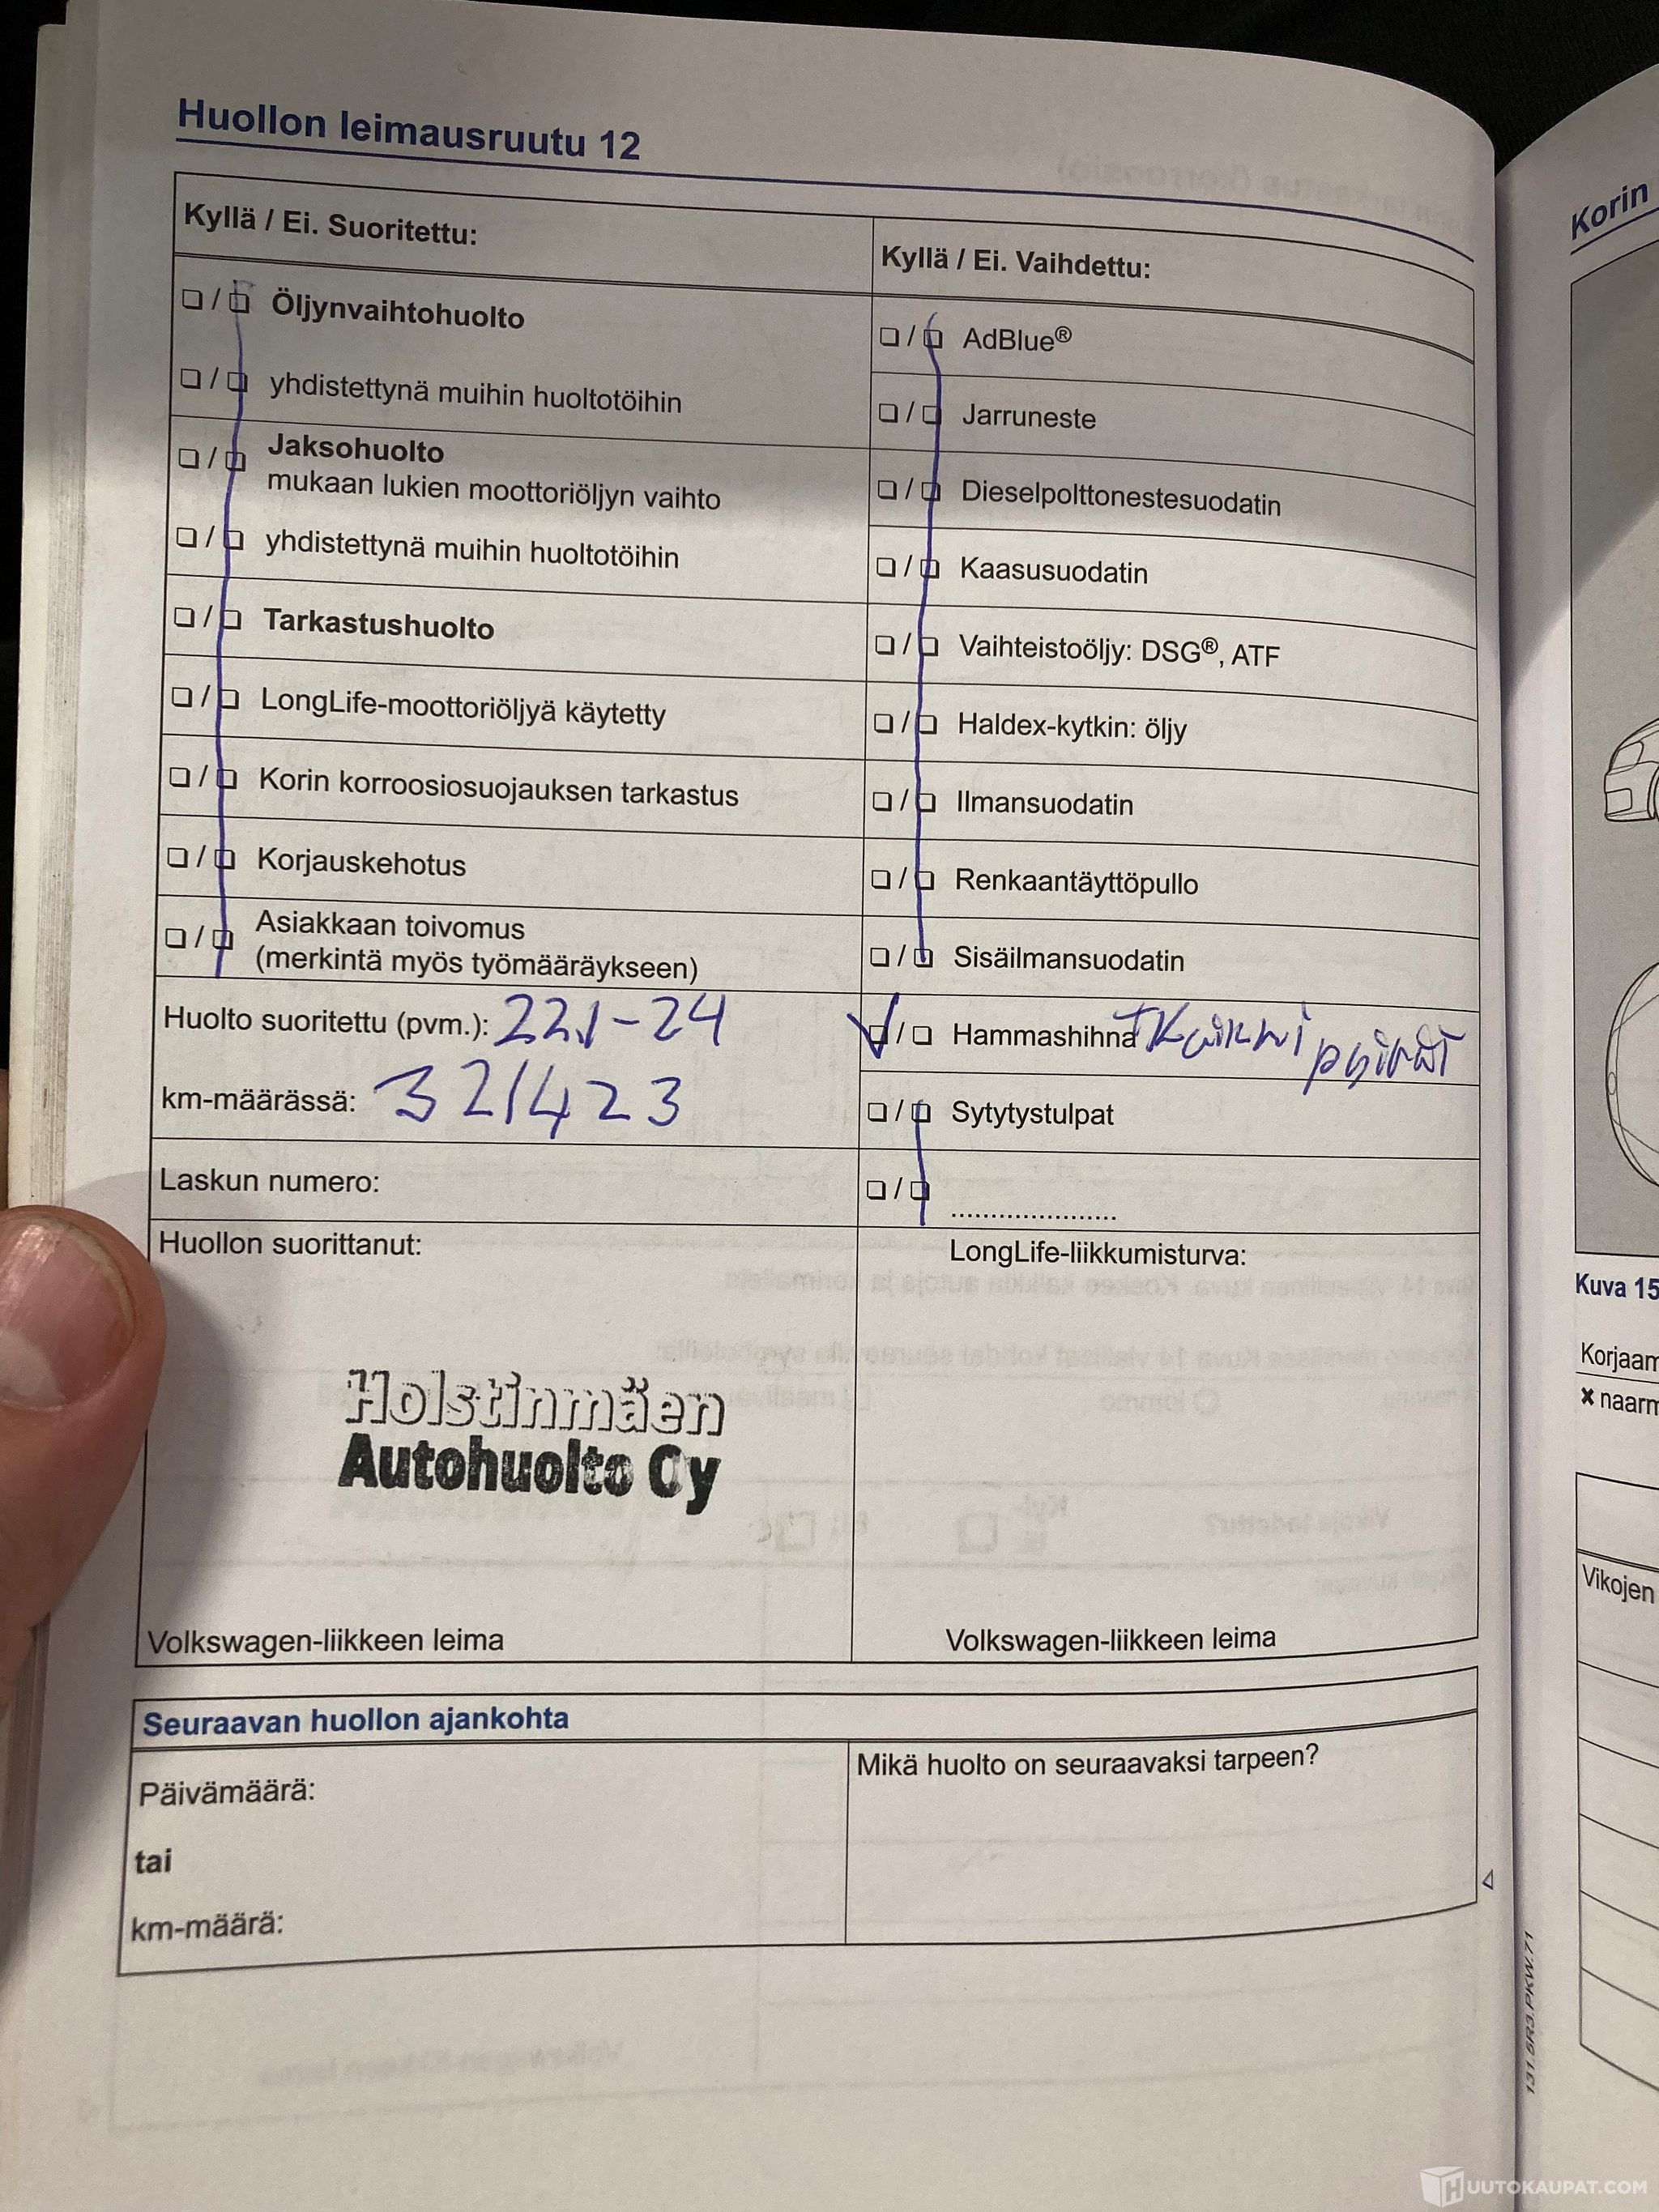 Huollon leimausruutu 12
Kyllä / Ei. Suoritettu:
☐ / ☐ Öljynvaihtohuolto
☐ / ☐ yhdistettynä muihin huoltotöihin
☐ / ☐ Jaksohuolto
mukaan lukien moottoriöljyn vaihto
☐ / ☐ yhdistettynä muihin huoltotöihin
☐ / ☐ Tarkastushuolto
☐ / ☐ LongLife-moottoriöljyä käytetty
☐ / ☐ Korin korroosiosuojauksen tarkastus
☐ / ☐ Korjauskehotus
☐ / ☐ Asiakkaan toivomus
(merkintä myös työmääräykseen)
Huolto suoritettu (pvm.): 22.1-24
km-määrässä: 321423
Laskun numero:
Huollon suorittanut:
Holstinmäen
Autohuolto Oy
Volkswagen-liikkeen leima
Kyllä / Ei. Vaihdettu:
☐ / ☐ AdBlue®
☐ / ☐ Jarruneste
☐ / ☐ Dieselpolttonestesuodatin
☐ / ☐ Kaasusuodatin
☐ / ☐ Vaihteistoöljy: DSG®, ATF
☐ / ☐ Haldex-kytkin: öljy
☐ / ☐ Ilmansuodatin
☐ / ☐ Renkaantäyttöpullo
☐ / ☐ Sisäilmansuodatin
☑ / ☐ Hammashihna + Kaikki pyörät
☐ / ☐ Sytytystulpat
☐ / ☐ .....................
LongLife-liikkumisturva:
Volkswagen-liikkeen leima
Seuraavan huollon ajankohta
Päivämäärä:
tai
km-määrä:
Mikä huolto on seuraavaksi tarpeen?
131.5R3.PKW.71
Korin
Kuva 15
Korjaam
✖ naarm
Vikojen
HUUTOKAUPAT.COM